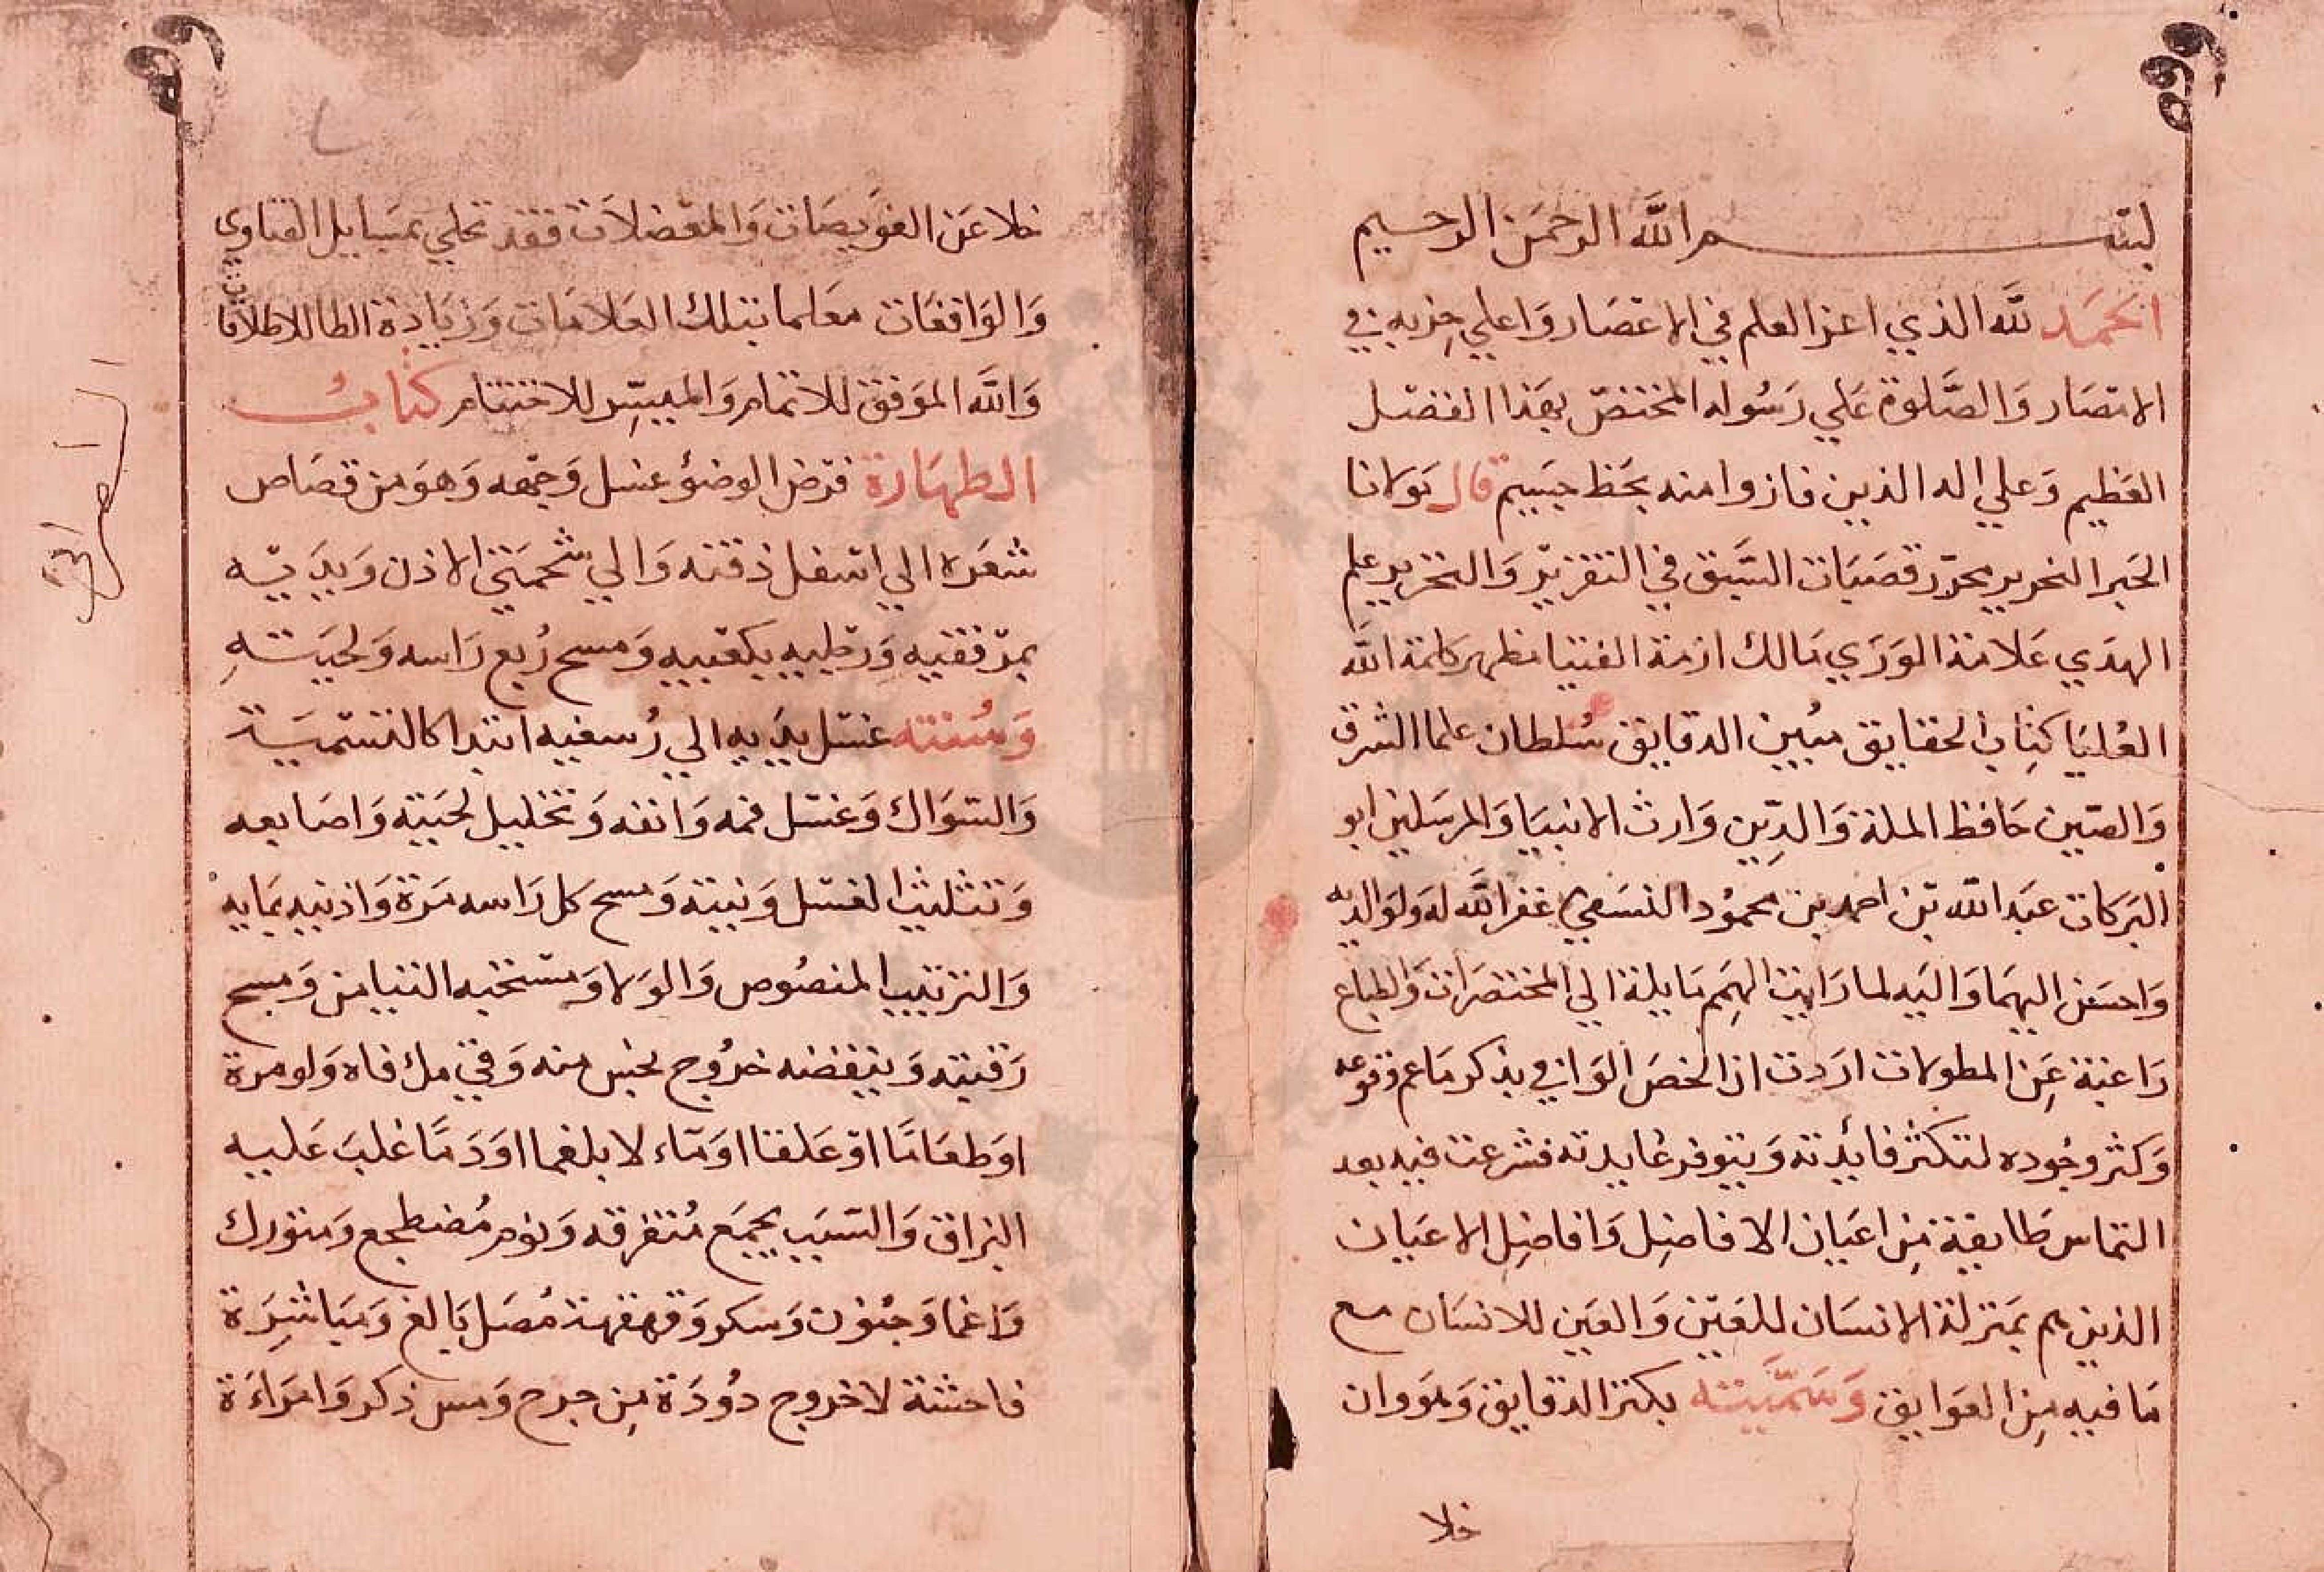 بسم الله الرحمن الرحيم
الحمد لله الذي اعز العلم في الاعصار واعلي حزبه في
الامصار والصلوة علي رسوله المختص بهذا الفضل
العظيم وعلي اله الذين فازوا منه بحظ جسيم قال مولانا
الحبر النحرير محرز قصبات السبق في التقرير والتحرير علم
الهدي علامة الوري مالك ازمة الفتيا مظهر كلمة الله
العليا كتاب الحقايق مبين الدقايق سلطان علما الشرق
والصين حافظ الملة والدين وارث الانبيا والمرسلين ابو
البركات عبد الله بن احمد بن محمود النسفي غفر الله له ولوالديه
واحسن اليهما واليه لما رايت الهمم مايلة الي المختصرات والطباع
راغبة عن المطولات اردت ان الخص الوافي بذكر ما عم وقوعه
وكثر وجوده لتكثر فائدته ويتوفر عايدته فشرعت فيه بعد
التماس طايفة من اعيان الافاضل وافاضل الاعيان
الذين هم بمنزلة الانسان للعين والعين للانسان مع
ما فيه من العوايق وسميته بكنز الدقايق وهو وان
خلا
خلا عن العويصات والمعضلات فقد تحلي بمسايل الفتاوي
والواقعات معلما بتلك العلامات وزيادة الطا للاطلاقات
والله الموفق للاتمام والميسر للاختتام كتاب
الطهارة فرض الوضؤ غسل وجهه وهو من قصاص
شعره الي اسفل ذقنه والي شحمتي الاذن ويديه
بمرفقيه ورجليه بكعبيه ومسح ربع راسه ولحيته
وسنته غسل يديه الي رسغيه ابتدا كالتسمية
والسواك وغسل فمه وانفه وتخليل لحيته واصابعه
وتثليث الغسل ونيته ومسح كل راسه مرة واذنيه بمايه
والترتيب المنصوص والولا ومستحبه التيامن ومسح
رقبته وينقضه خروج نجس منه وقي ملك فاه ولو مرة
او طعاما او علقا او ماء لا بلغما او دما غلب عليه
البزاق والسبب يجمع متفرقه ونوم مضطجع ومتورك
واغما وجنون وسكر وقهقهة مصل بالغ ومباشرة
فاحشة لا خروج دودة من جرح ومس ذكر وامراءة